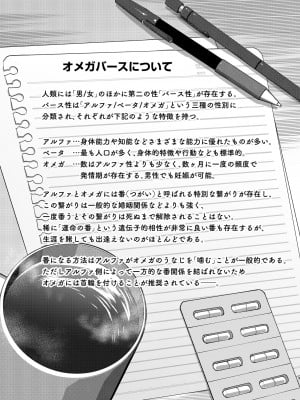 オメガバースについて
人類には「男/女」のほかに第二の性「バース性」が存在する。
バース性は「アルファ/ベータ/オメガ」という三種の性別に
分類され、それぞれが下記のような特徴を持つ。
アルファ…身体能力や知能などさまざまな能力に優れたものが多い。
ベータ …最も人口が多く、身体的特徴や行動なども標準的。
オメガ …数はアルファ性よりも少なく、数ヶ月に一度の頻度で
発情期が存在する。男性でも妊娠が可能。
アルファとオメガには番（つがい）と呼ばれる特別な繋がりが存在し、
この繋がりは一般的な婚姻関係などよりも強く、
一度番うとその繋がりは死ぬまで解除されることはない。
稀に「運命の番」という遺伝子的相性が非常に良い番も存在するが、
生涯を賭しても出逢えないのがほとんどである。
番になる方法はアルファがオメガのうなじを「噛む」ことが一般的である。
ただしアルファ側によって一方的な番関係を結ばれないため
オメガには首輪を付けることが推奨されている――。